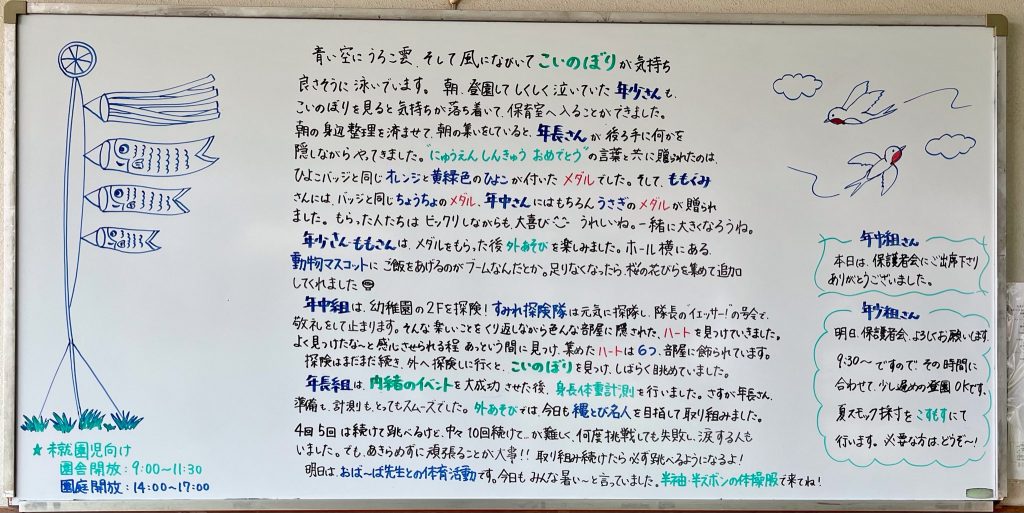 青い空にうろこ雲、そして風になびいてこいのぼりが気持ち
良さそうに泳いでいます。朝、登園してしくしく泣いていた年少さんも、
こいのぼりを見ると気持ちが落ち着いて、保育室へ入ることができました。
朝の身辺整理を済ませて、朝の集いをしていると、年長さんが後ろ手に何かを
隠しながらやってきました。"にゅうえん しんきゅう おめでとう"の言葉と共に贈られたのは、
ひよこバッジと同じオレンジと黄緑色のひよこが付いたメダルでした。そして、ももぐみ
さんには、バッジと同じちょうちょのメダル、年中さんにはもちろんうさぎのメダルが贈られ
ました。もらった人たちはビックリしながらも、大喜び うれしいね。一緒に大きくなろうね。
年少さん・ももさんは、メダルをもらった後外あそびを楽しみました。ホール横にある
動物マスコットにご飯をあげるのがブームなんだとか。足りなくなったら桜の花びらを集めて追加
してくれました
年中組は、幼稚園の2Fを探険!すみれ探険隊は元気に探険し、隊長の"イエッサー!"の号令で、
敬礼をして止まります。そんな楽しいことをくり返しながら色んな部屋に隠された、ハートを見つけていきました。
よく見つけたな〜と感心させられる程あっという間に見つけ、集めたハートは6つ、部屋に飾られています。
探険はまだまだ続き、外へ探険しに行くと、こいのぼりを見つけ、しばらく眺めていました。
年長組は、内緒のイベントを大成功させた後、身長体重計測を行いました。さすが年長さん、
準備も、計測も、とってもスムーズでした。外あそびでは今日も縄とび名人を目指して取り組みました。
4回5回は続けて跳べるけど、中々10回続けて…が難しく、何度挑戦しても失敗し、涙する人も
いました。でも、あきらめずに頑張ることが大事!!取り組み続けたら必ず跳べるようになるよ!
明日は、おばーば先生との体育活動です。今日もみんな暑い〜と言っていました。半袖・半ズボンの体操服で来てね!
★未就園児向け
園舎開放:9:00〜11:30
園庭開放:14:00〜17:00
年中組さん
本日は、保護者会にご出席下さり
ありがとうございました。
年少組さん
明日、保護者会、よろしくお願いします
9:30〜ですので、その時間に
合わせて、少し遅めの登園OKです。
夏スモック採寸をこすもすにて
行います。必要な方は、どうぞ〜!